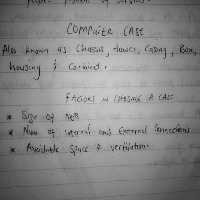 COMPUTER CASE
Also known as Chassis, tower, Casing, Box,
housing & Carbinet.
FACTORS IN CHOOSING A CASE
* Size Of
* Num of internal and External Connections
* Available Space & ventilation